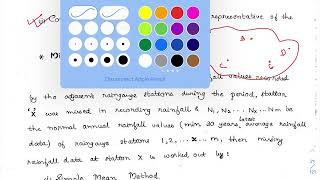 1) Co representative of the
* Mi B.
fall values recorded
by the adjacent raingauge stations during the period, station
'X' was missed in recording rainfall & N1, N2 ... Nm be
latest
the normal annual rainfall values (min 30 years, average rainfall
data) of raingauge stations 1, 2, ... X ... m, then missing
rainfall data at station X is worked out by:
1) Simple Mean Method.